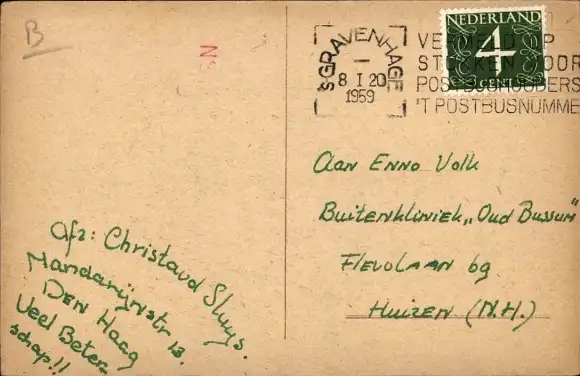 B
NS
'S-GRAVENHAGE
8 I 20
1959
VE
ST KEN OOR
POSTBUSHOUDERS
'T POSTBUSNUMME
NEDERLAND
4
CENT
Aan Enno Volk
Buitenkliniek „Oud Bussum"
Flevolaan 69
Huizen (N.H.)
Afz: Christaud Sluys.
Mandarijnstr 13.
Den Haag
Veel Beter
schap!!